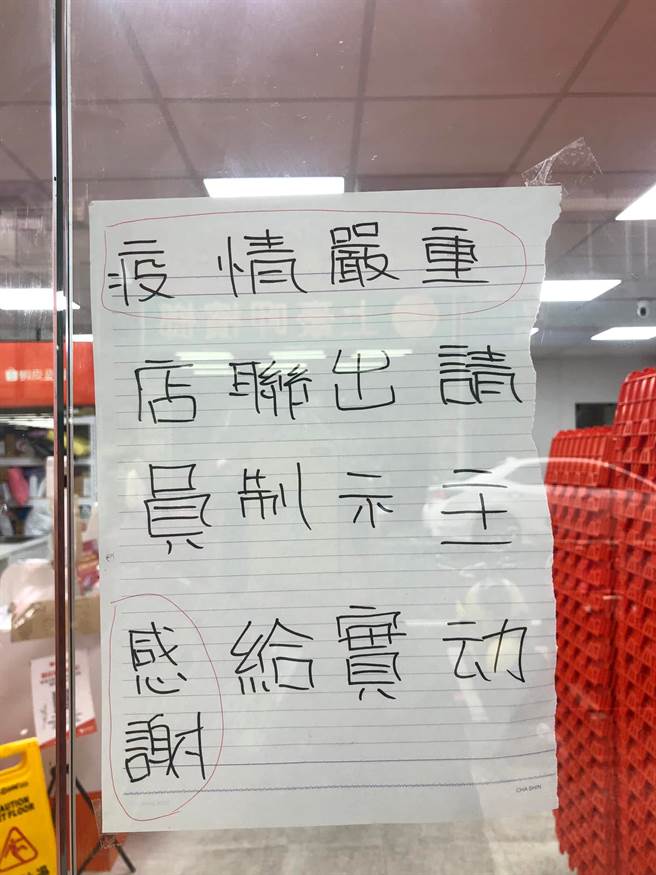 疫情嚴重
請主动
出示實
聯制給
店員
感謝
CHA SHIN
蝦皮
CAUTION
FLOOR